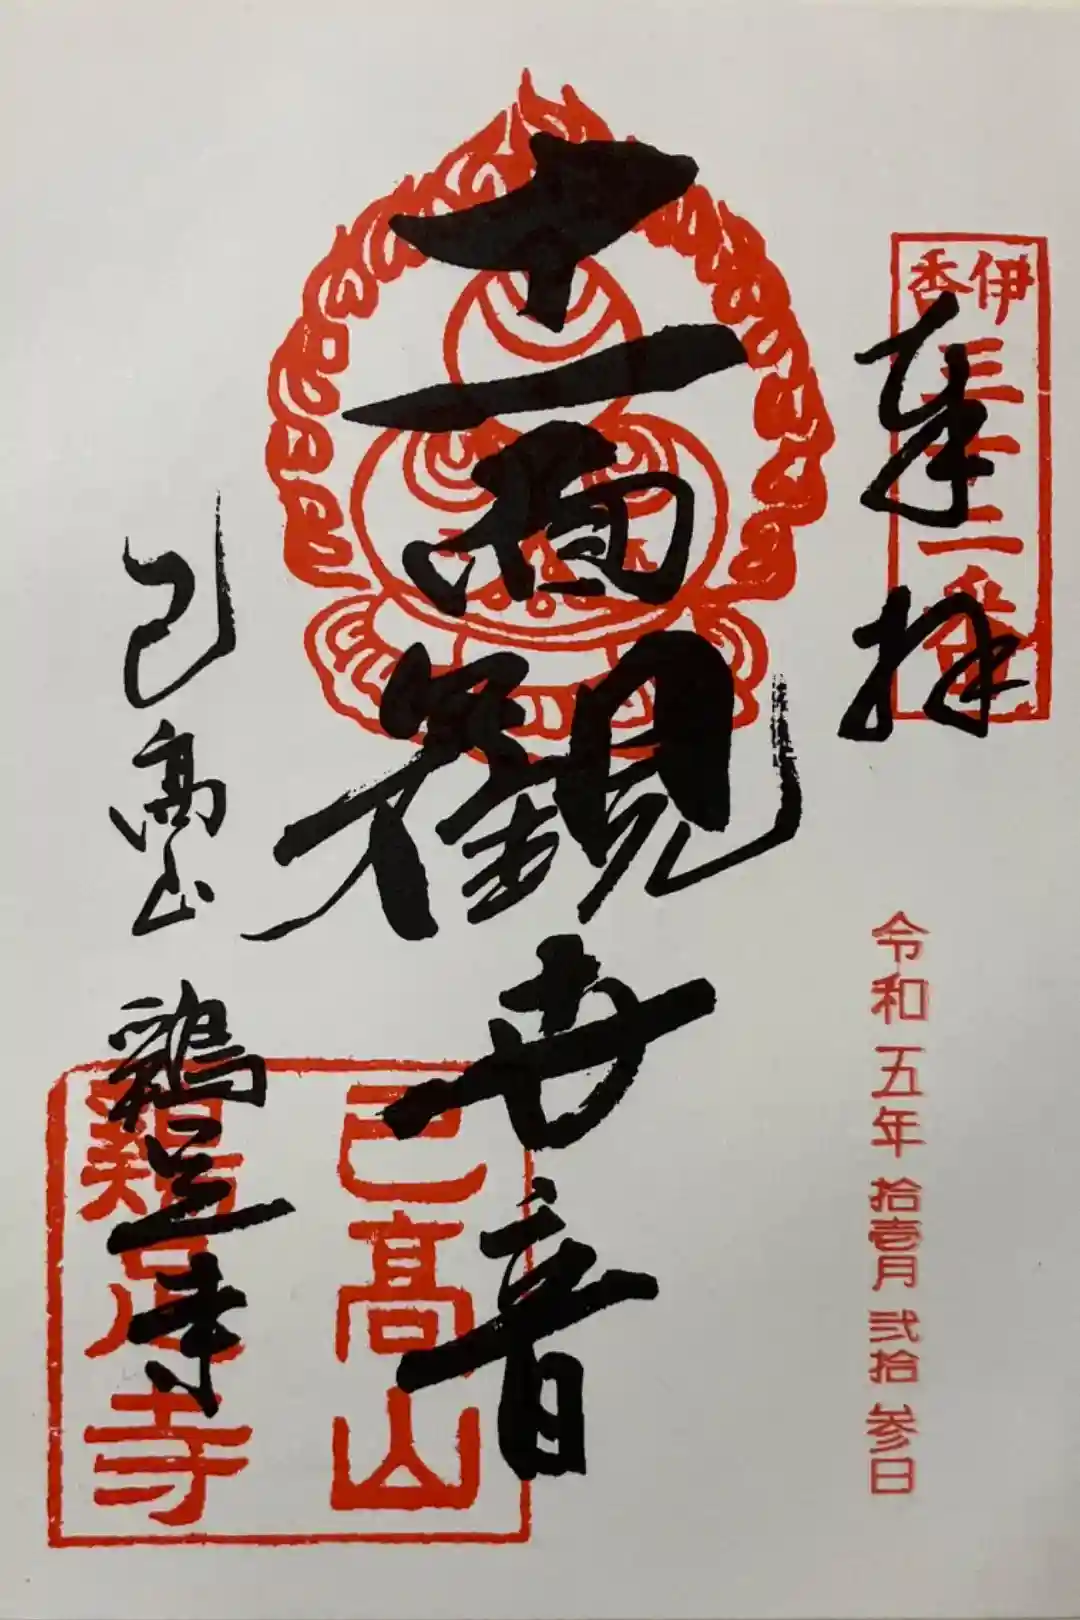 奉拝
伊香
三十三番
令和五年拾壱月弐拾参日
十一面観世音
己高山　鶏足寺
己高山
鶏足寺